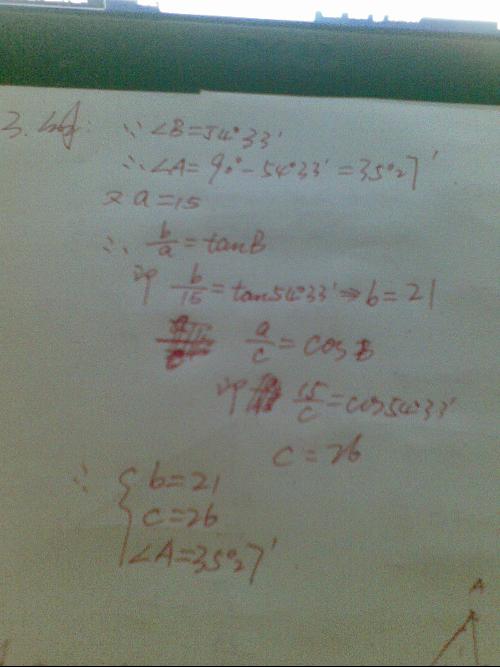 3. 解:∵∠B=54°33′
∴∠A=90°-54°33′=35°27′
又a=15
∴ b/a=tanB
即 b/15=tan54°33′⇒b=21
a/c=cosB
即 15/c=cos54°33′
c=26
∴ { b=21
c=26
∠A=35°27′
A